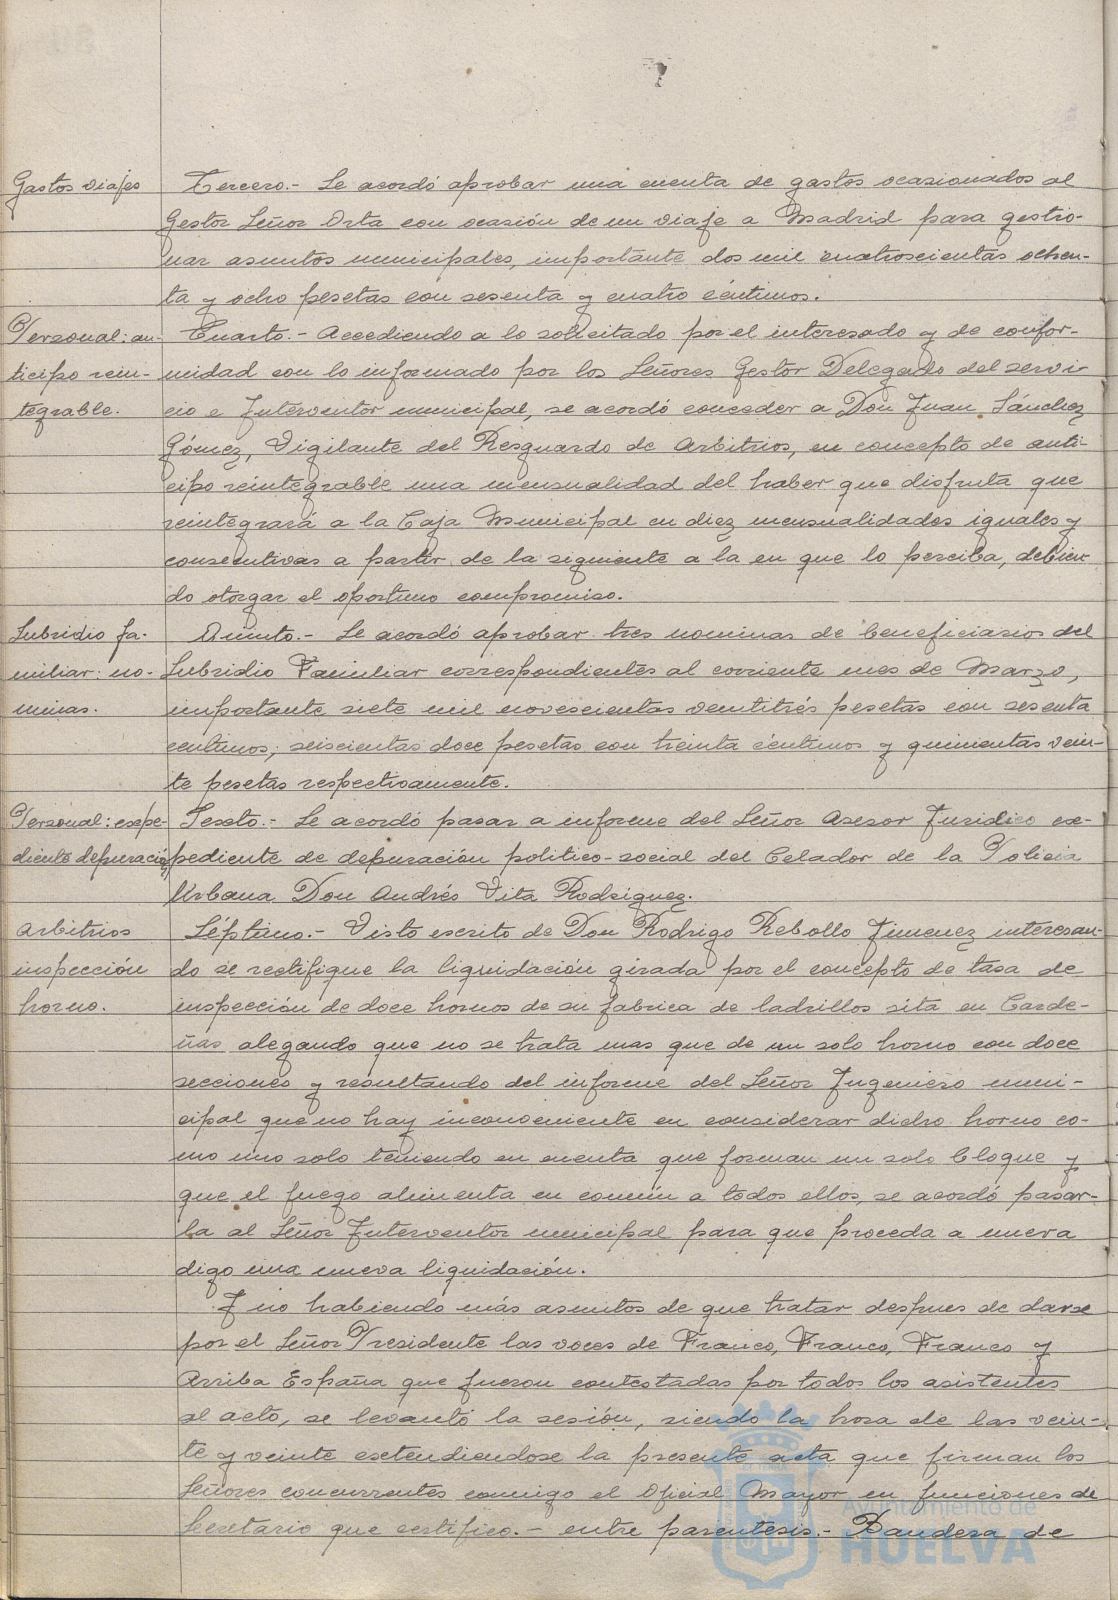 Gastos viajes
Tercero.- Se acordó aprobar una cuenta de gastos ocasionados al
Gestor Señor Orta con ocasión de un viaje a Madrid para gestio-
nar asuntos municipales, importante dos mil cuatroscientas ochen-
ta y ocho pesetas con sesenta y cuatro céntimos.
Personal: an-
ticipo rein-
tegrable.
Cuarto.- Accediendo a lo solicitado por el interesado y de confor-
midad con lo informado por los Señores Gestor Delegado del servi-
cio e Interventor municipal, se acordó conceder a Don Juan Sánchez
Gómez, Vigilante del Resguardo de Arbitrios, en concepto de anti-
cipo reintegrable una mensualidad del haber que disfruta que
reintegrará a la Caja Municipal en diez mensualidades iguales y
consecutivas a partir de la siguiente a la en que lo perciba, debien-
do otorgar el oportuno compromiso.
Subsidio fa-
miliar: no-
minas.
Quinto.- Se acordó aprobar tres nominas de beneficiarios del
Subsidio Familiar correspondientes al corriente mes de Marzo,
importante siete mil novescientas veintitrés pesetas con sesenta
centimos, seiscientas doce pesetas con treinta céntimos y quinientas vein-
te pesetas respectivamente.
Personal: expe-
diente depuración
Sexto.- Se acordó pasar a informe del Señor Asesor Juridico ex-
pediente de depuración politico-social del Celador de la Policia
Urbana Don Andrés Vita Rodriguez.
Arbitrios
inspección
horno.
Séptimo.- Visto escrito de Don Rodrigo Rebollo Jimenez interesan-
do se rectifique la liquidación girada por el concepto de tasa de
inspección de doce hornos de su fabrica de ladrillos sita en Carde-
ñas alegando que no se trata mas que de un solo horno con doce
secciones y resultando del informe del Señor Ingeniero muni-
cipal que no hay inconveniente en considerar dicho horno co-
mo uno solo teniendo en cuenta que forman un solo bloque y
que el fuego alimenta en común a todos ellos, se acordó pasar-
la al Señor Interventor municipal para que proceda a nueva
digo una nueva liquidación.
Y no habiendo más asuntos de que tratar despues de darse
por el Señor Presidente las voces de Franco, Franco, Franco y
Arriba España que fueron contestadas por todos los asistentes
al acto, se levantó la sesión, siendo la hora de las vein-
te y veinte extendiendose la presente acta que firman los
Señores concurrentes conmigo el Oficial Mayor en funciones de
Secretario que certifico.- entre parentesis.- Bandera de
Ayuntamiento de
HUELVA